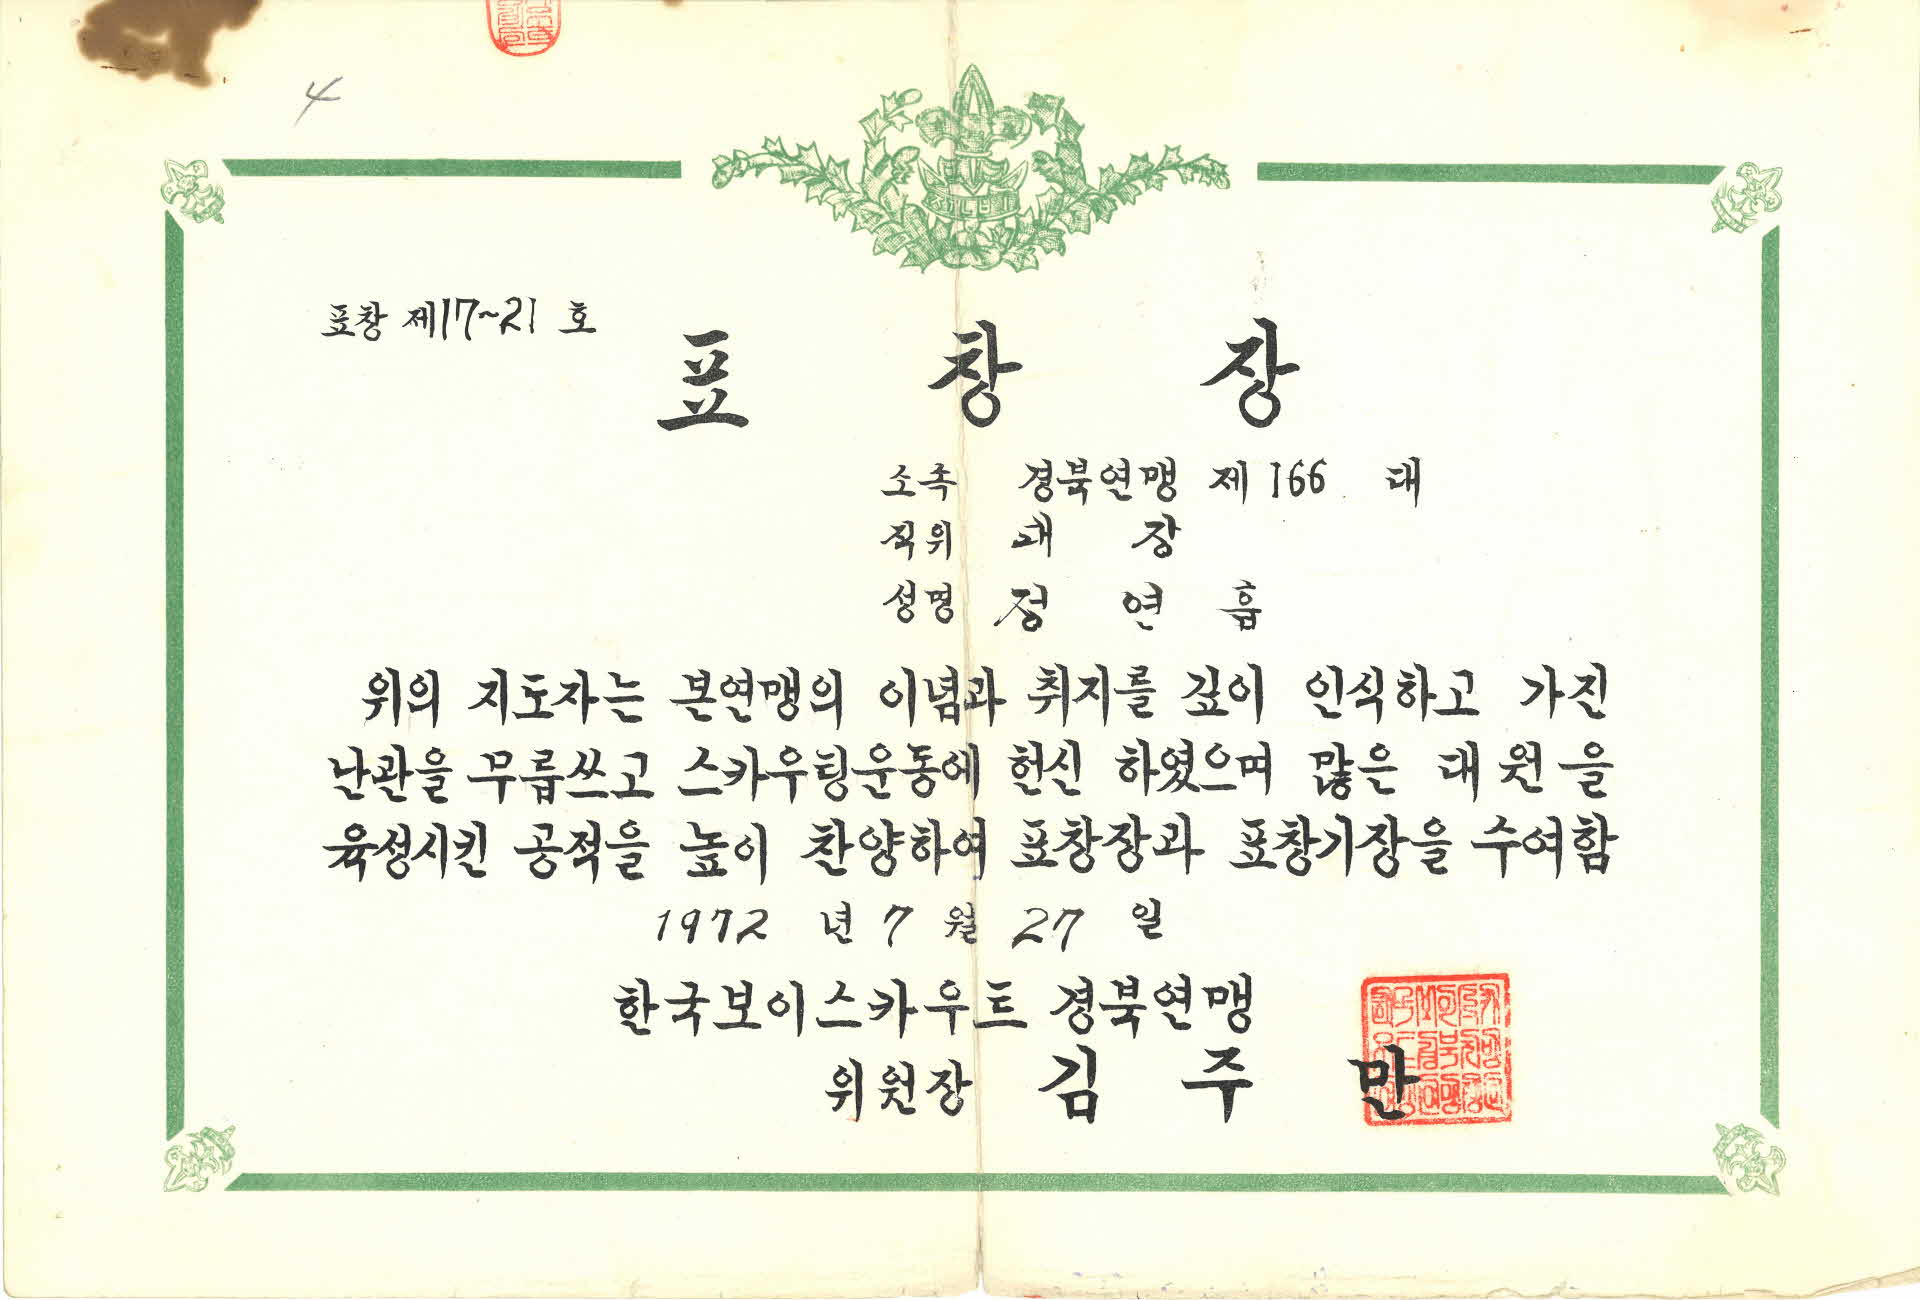 4
준비
표창 제17~21 호
표 창 장
소속 경북연맹 제166 대
직위 대 장
성명 정 연 흡
위의 지도자는 본연맹의 이념과 취지를 깊이 인식하고 가진
난관을 무릅쓰고 스카우팅운동에 헌신 하였으며 많은 대원을
육성시킨 공적을 높이 찬양하여 표창장과 표창기장을 수여함
1972 년 7 월 27 일
한국보이스카우트 경북연맹
위원장 김 주 만